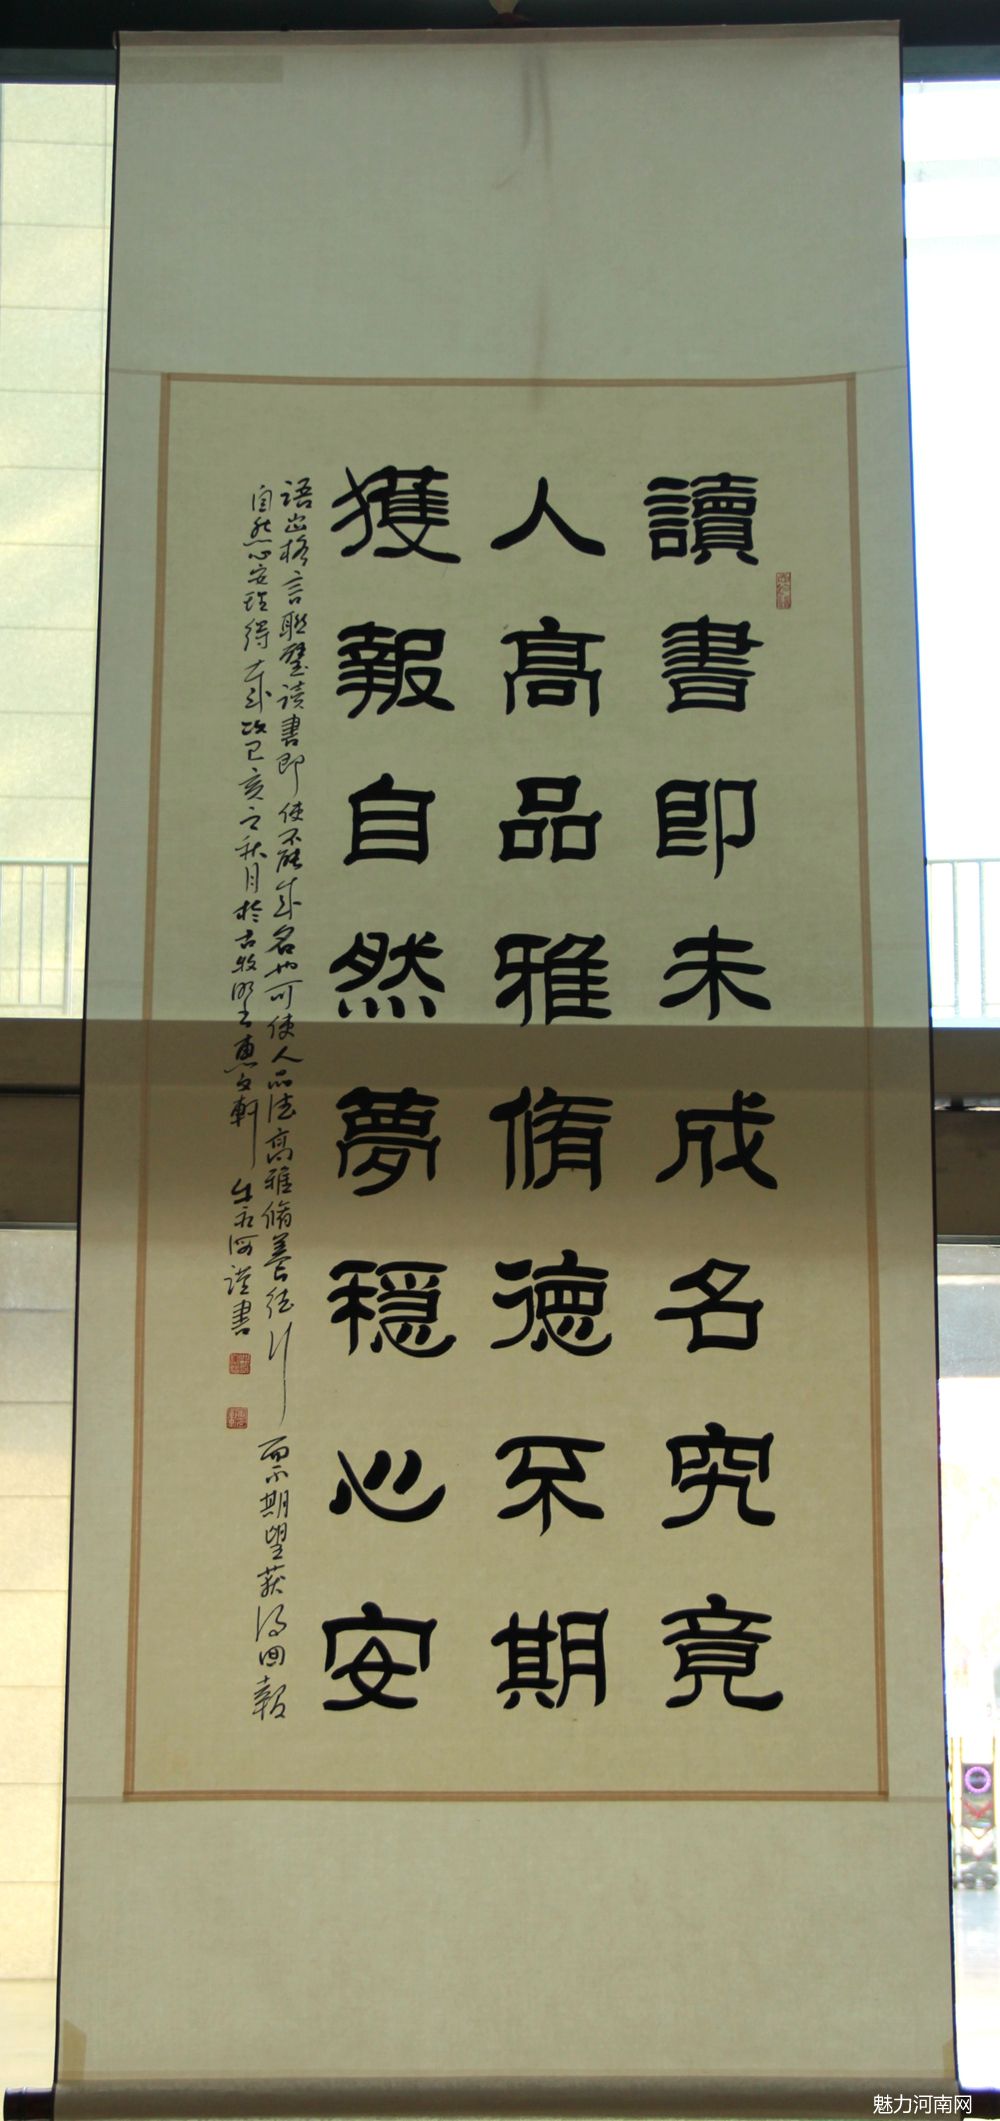 讀書即未成名究竟
人高品雅脩德不期
獲報自然夢穩心安
語出格言聯璧读書即使不能成名也可使人品德高雅脩養德行而不期望获得回報
自然心安理得 己亥之秋月於古牧野惠文軒 谨書
魅力河南网